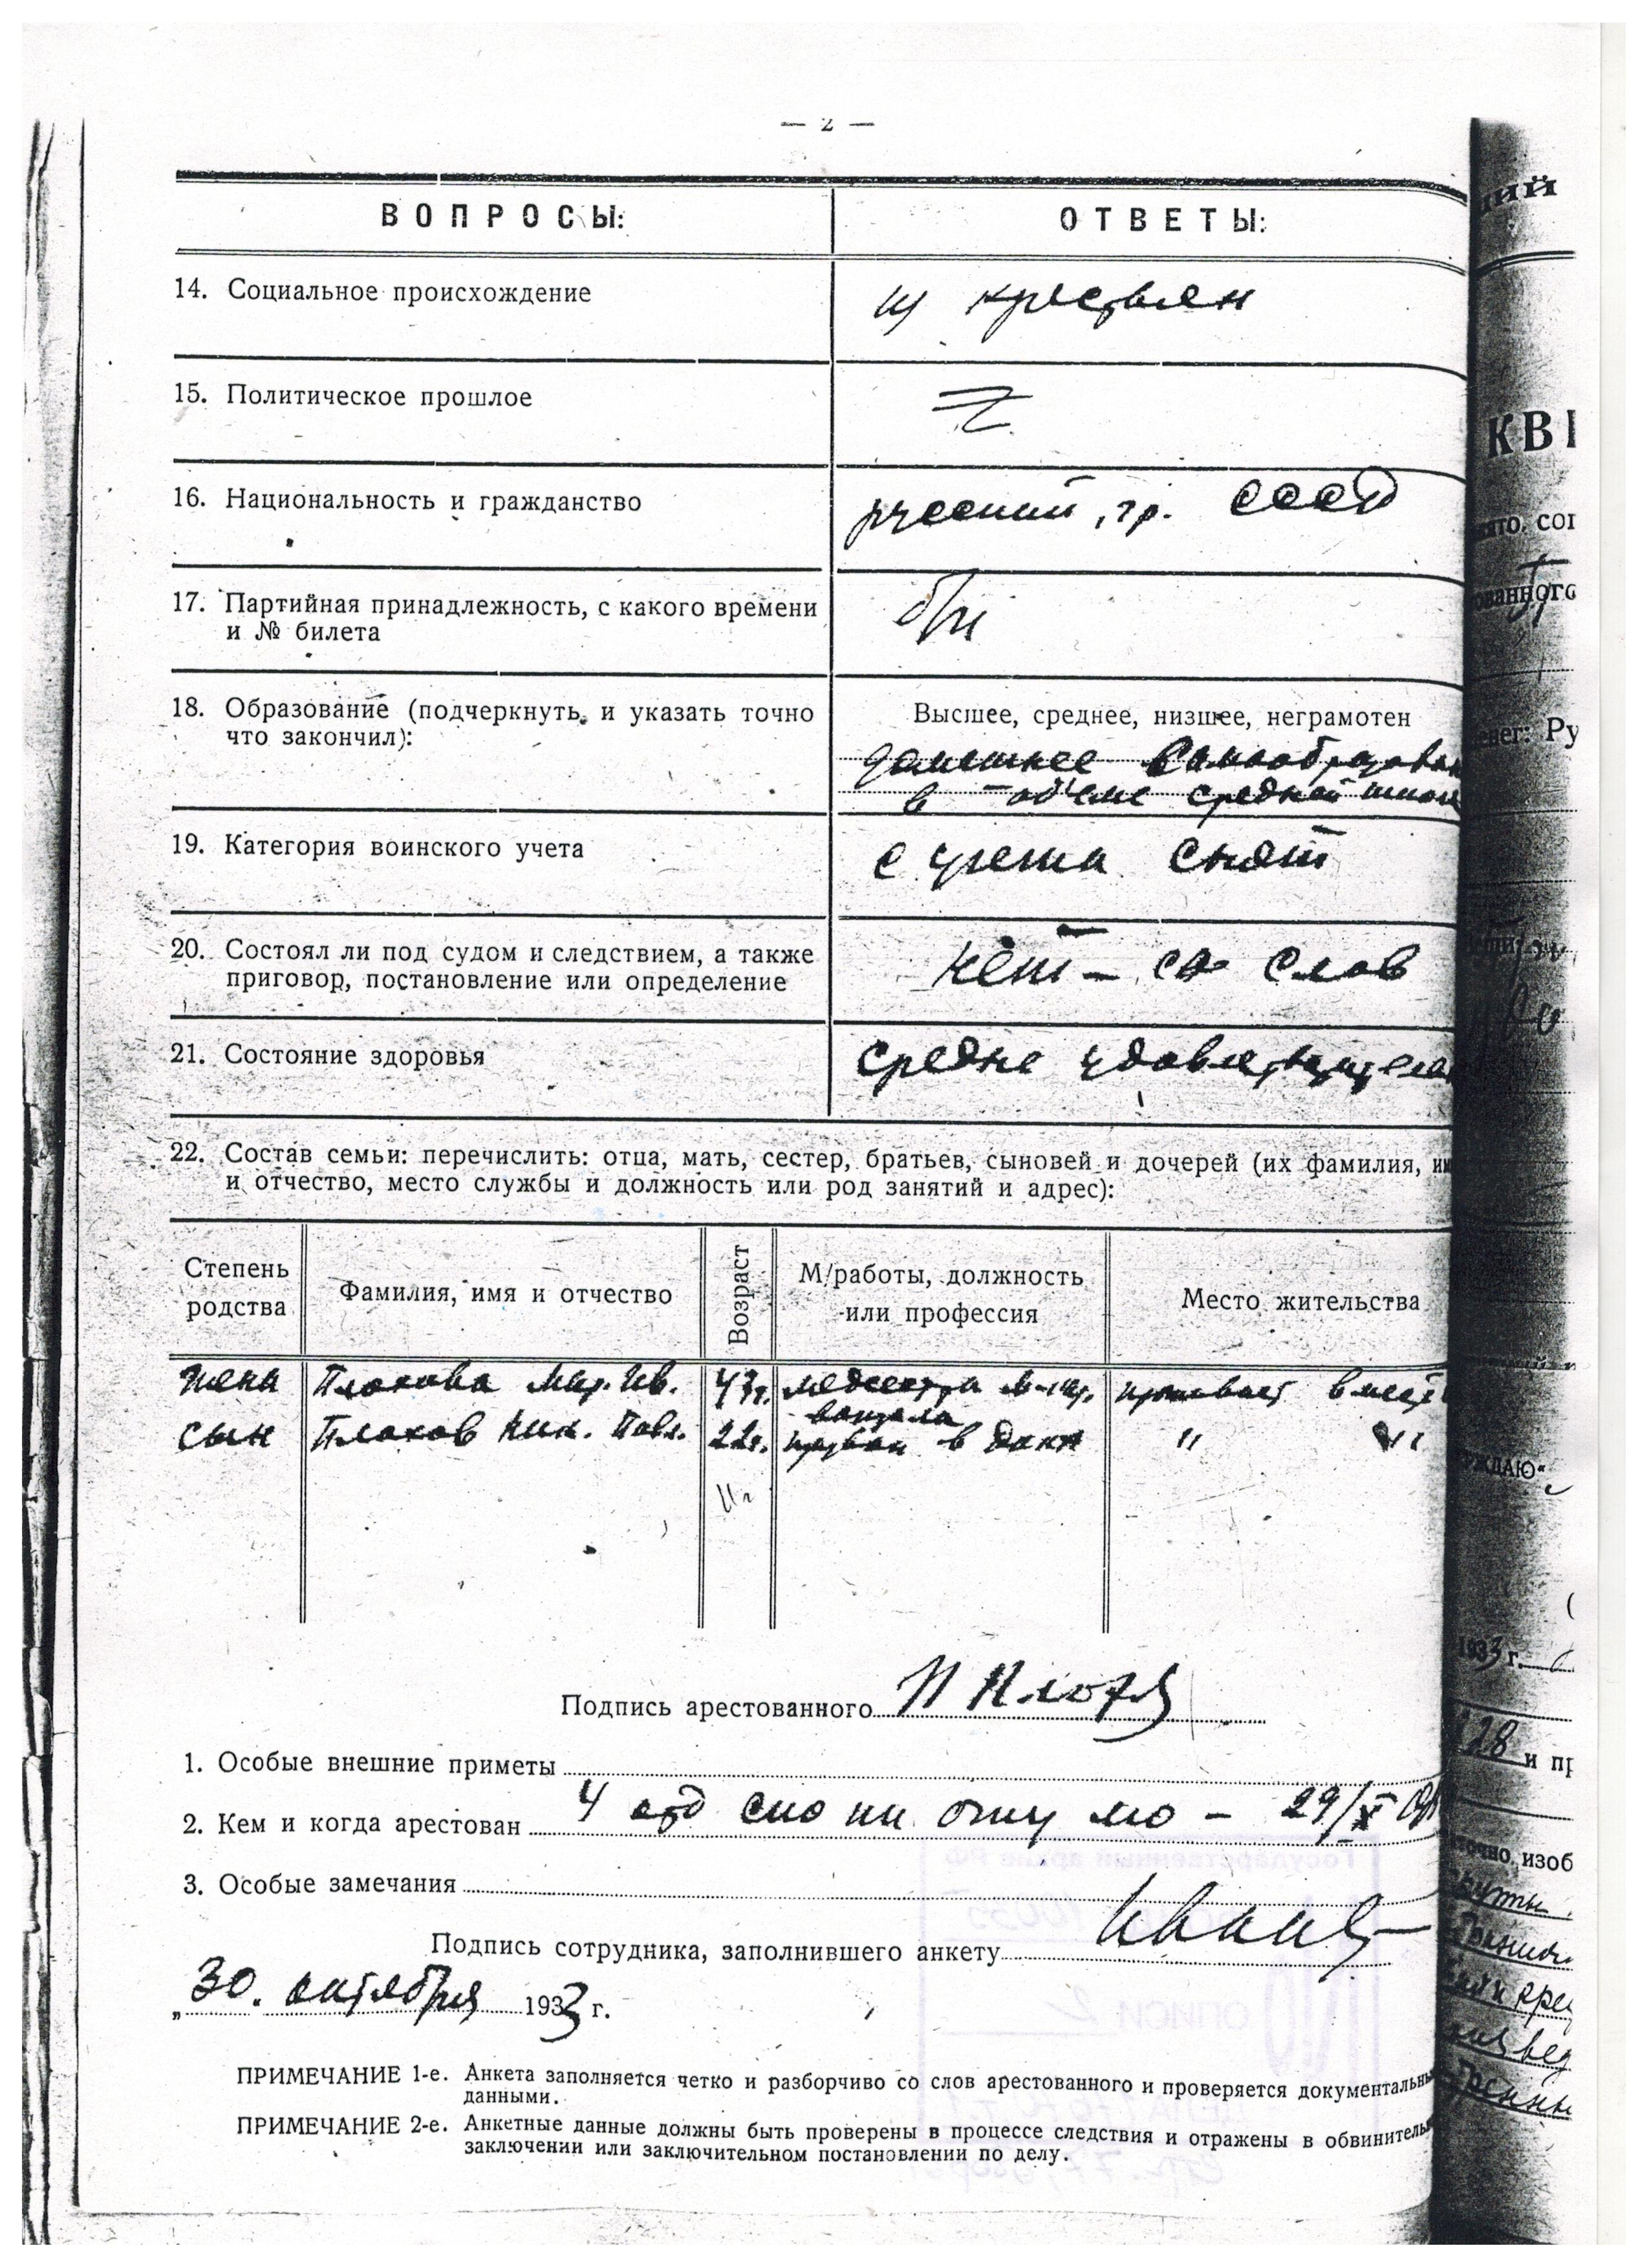 — 2 —
ВОПРОСЫ:
ОТВЕТЫ:
14. Социальное происхождение
из крестьян
15. Политическое прошлое
16. Национальность и гражданство
русский, гр. СССР
17. Партийная принадлежность, с какого времени
и № билета
б/п
18. Образование (подчеркнуть и указать точно
что закончил):
Высшее, среднее, низшее, неграмотен
домашнее самообразован
в объеме средней школ
19. Категория воинского учета
с учета снят
20. Состоял ли под судом и следствием, а также
приговор, постановление или определение
нет — со слов
21. Состояние здоровья
средне удовлетворител
22. Состав семьи: перечислить: отца, мать, сестер, братьев, сыновей и дочерей (их фамилия, им
и отчество, место службы и должность или род занятий и адрес):
Степень родства
Фамилия, имя и отчество
Возраст
М/работы, должность или профессия
Место жительства
жена Мар. Ив. 43г. медсестра вокзала проживает вмест
сын Ник. Павл. 22г. призван в " "
Подпись арестованного
1. Особые внешние приметы
2. Кем и когда арестован 4 отд СПО ПП ОГПУ МО — 29/X
3. Особые замечания
Подпись сотрудника, заполнившего анкету
„30. октября 1933 г.
ПРИМЕЧАНИЕ 1-е. Анкета заполняется четко и разборчиво со слов арестованного и проверяется документальны
данными.
ПРИМЕЧАНИЕ 2-е. Анкетные данные должны быть проверены в процессе следствия и отражены в обвинитель
заключении или заключительном постановлении по делу.